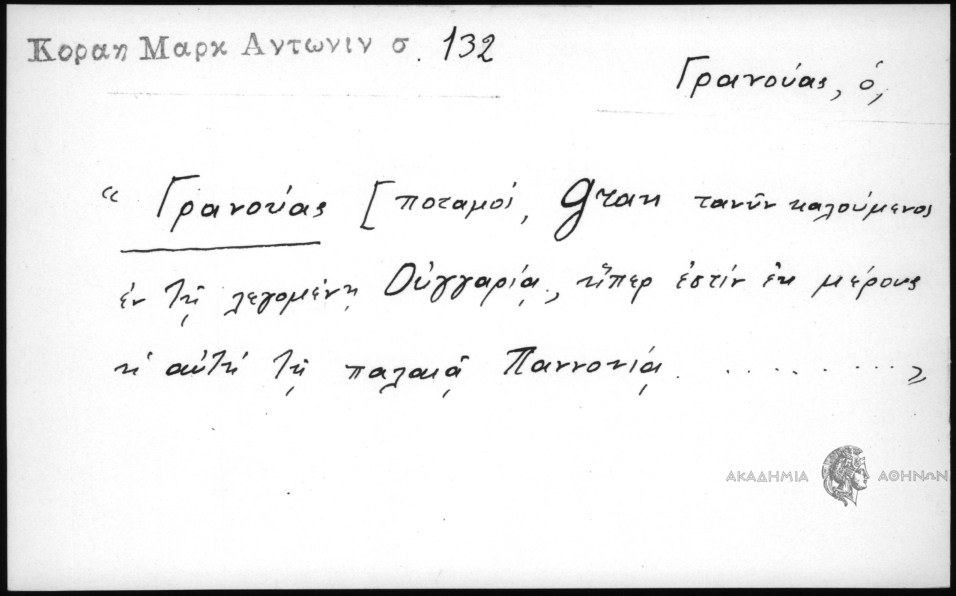 Κοραη Μαρκ Αντωνιν σ. 132
Γρανούας, ὁ,
“ Γρανούας [ποταμοί, Gran τανῦν καλούμενος
ἐν τῇ λεγομένῃ Οὑγγαρίᾳ, ἥπερ ἐστίν ἐκ μέρους
ἡ αὐτή τῇ παλαιᾷ Παννονίᾳ. . . . . . . . . . „
ΑΚΑΔΗΜΙΑ ΑΘΗΝΩΝ